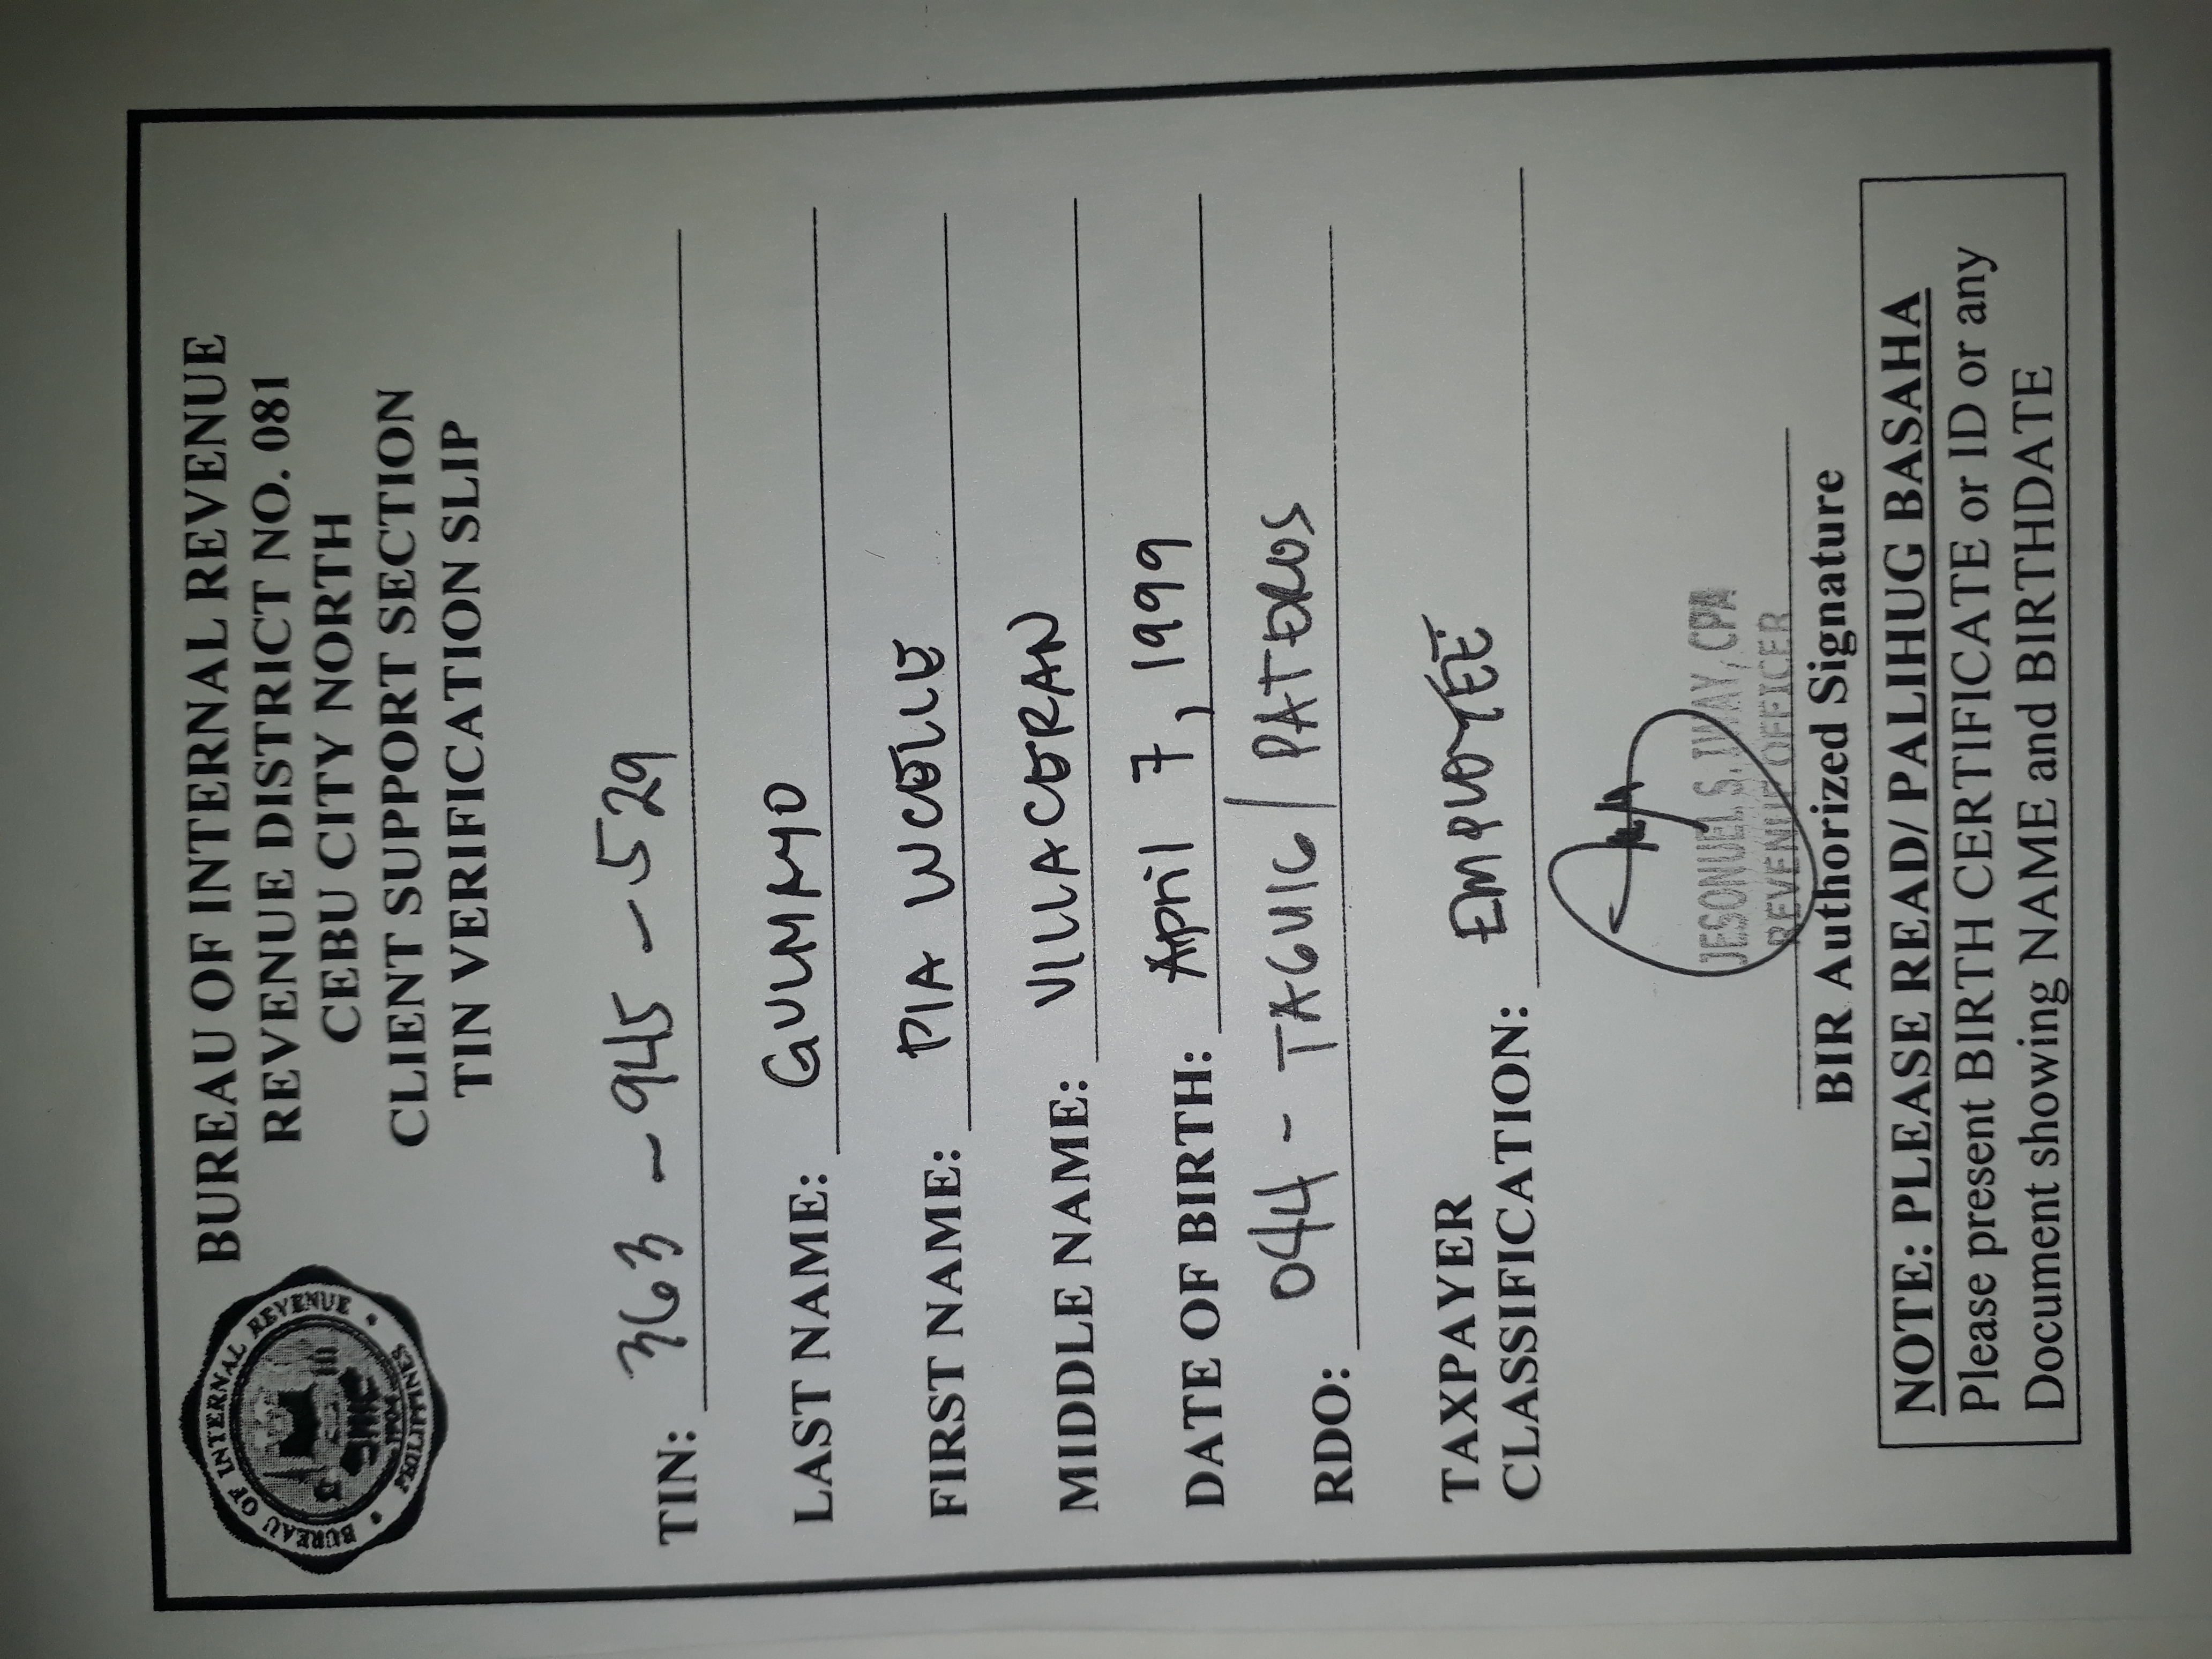 BUREAU OF INTERNAL REVENUE
REVENUE DISTRICT NO. 081
CEBU CITY NORTH
CLIENT SUPPORT SECTION
TIN VERIFICATION SLIP
BUREAU OF INTERNAL REVENUE
PHILIPPINES
TIN: 363 - 945 - 529
LAST NAME: GULMAYO
FIRST NAME: PIA
MIDDLE NAME: VILLACERAN
DATE OF BIRTH: April 7, 1999
RDO: 044 - TAGUIG / PATEROS
TAXPAYER
CLASSIFICATION: EMPLOYEE
JESONUEL S. , CPA
REVENUE OFFICER
BIR Authorized Signature
NOTE: PLEASE READ/ PALIHUG BASAHA
Please present BIRTH CERTIFICATE or ID or any
Document showing NAME and BIRTHDATE